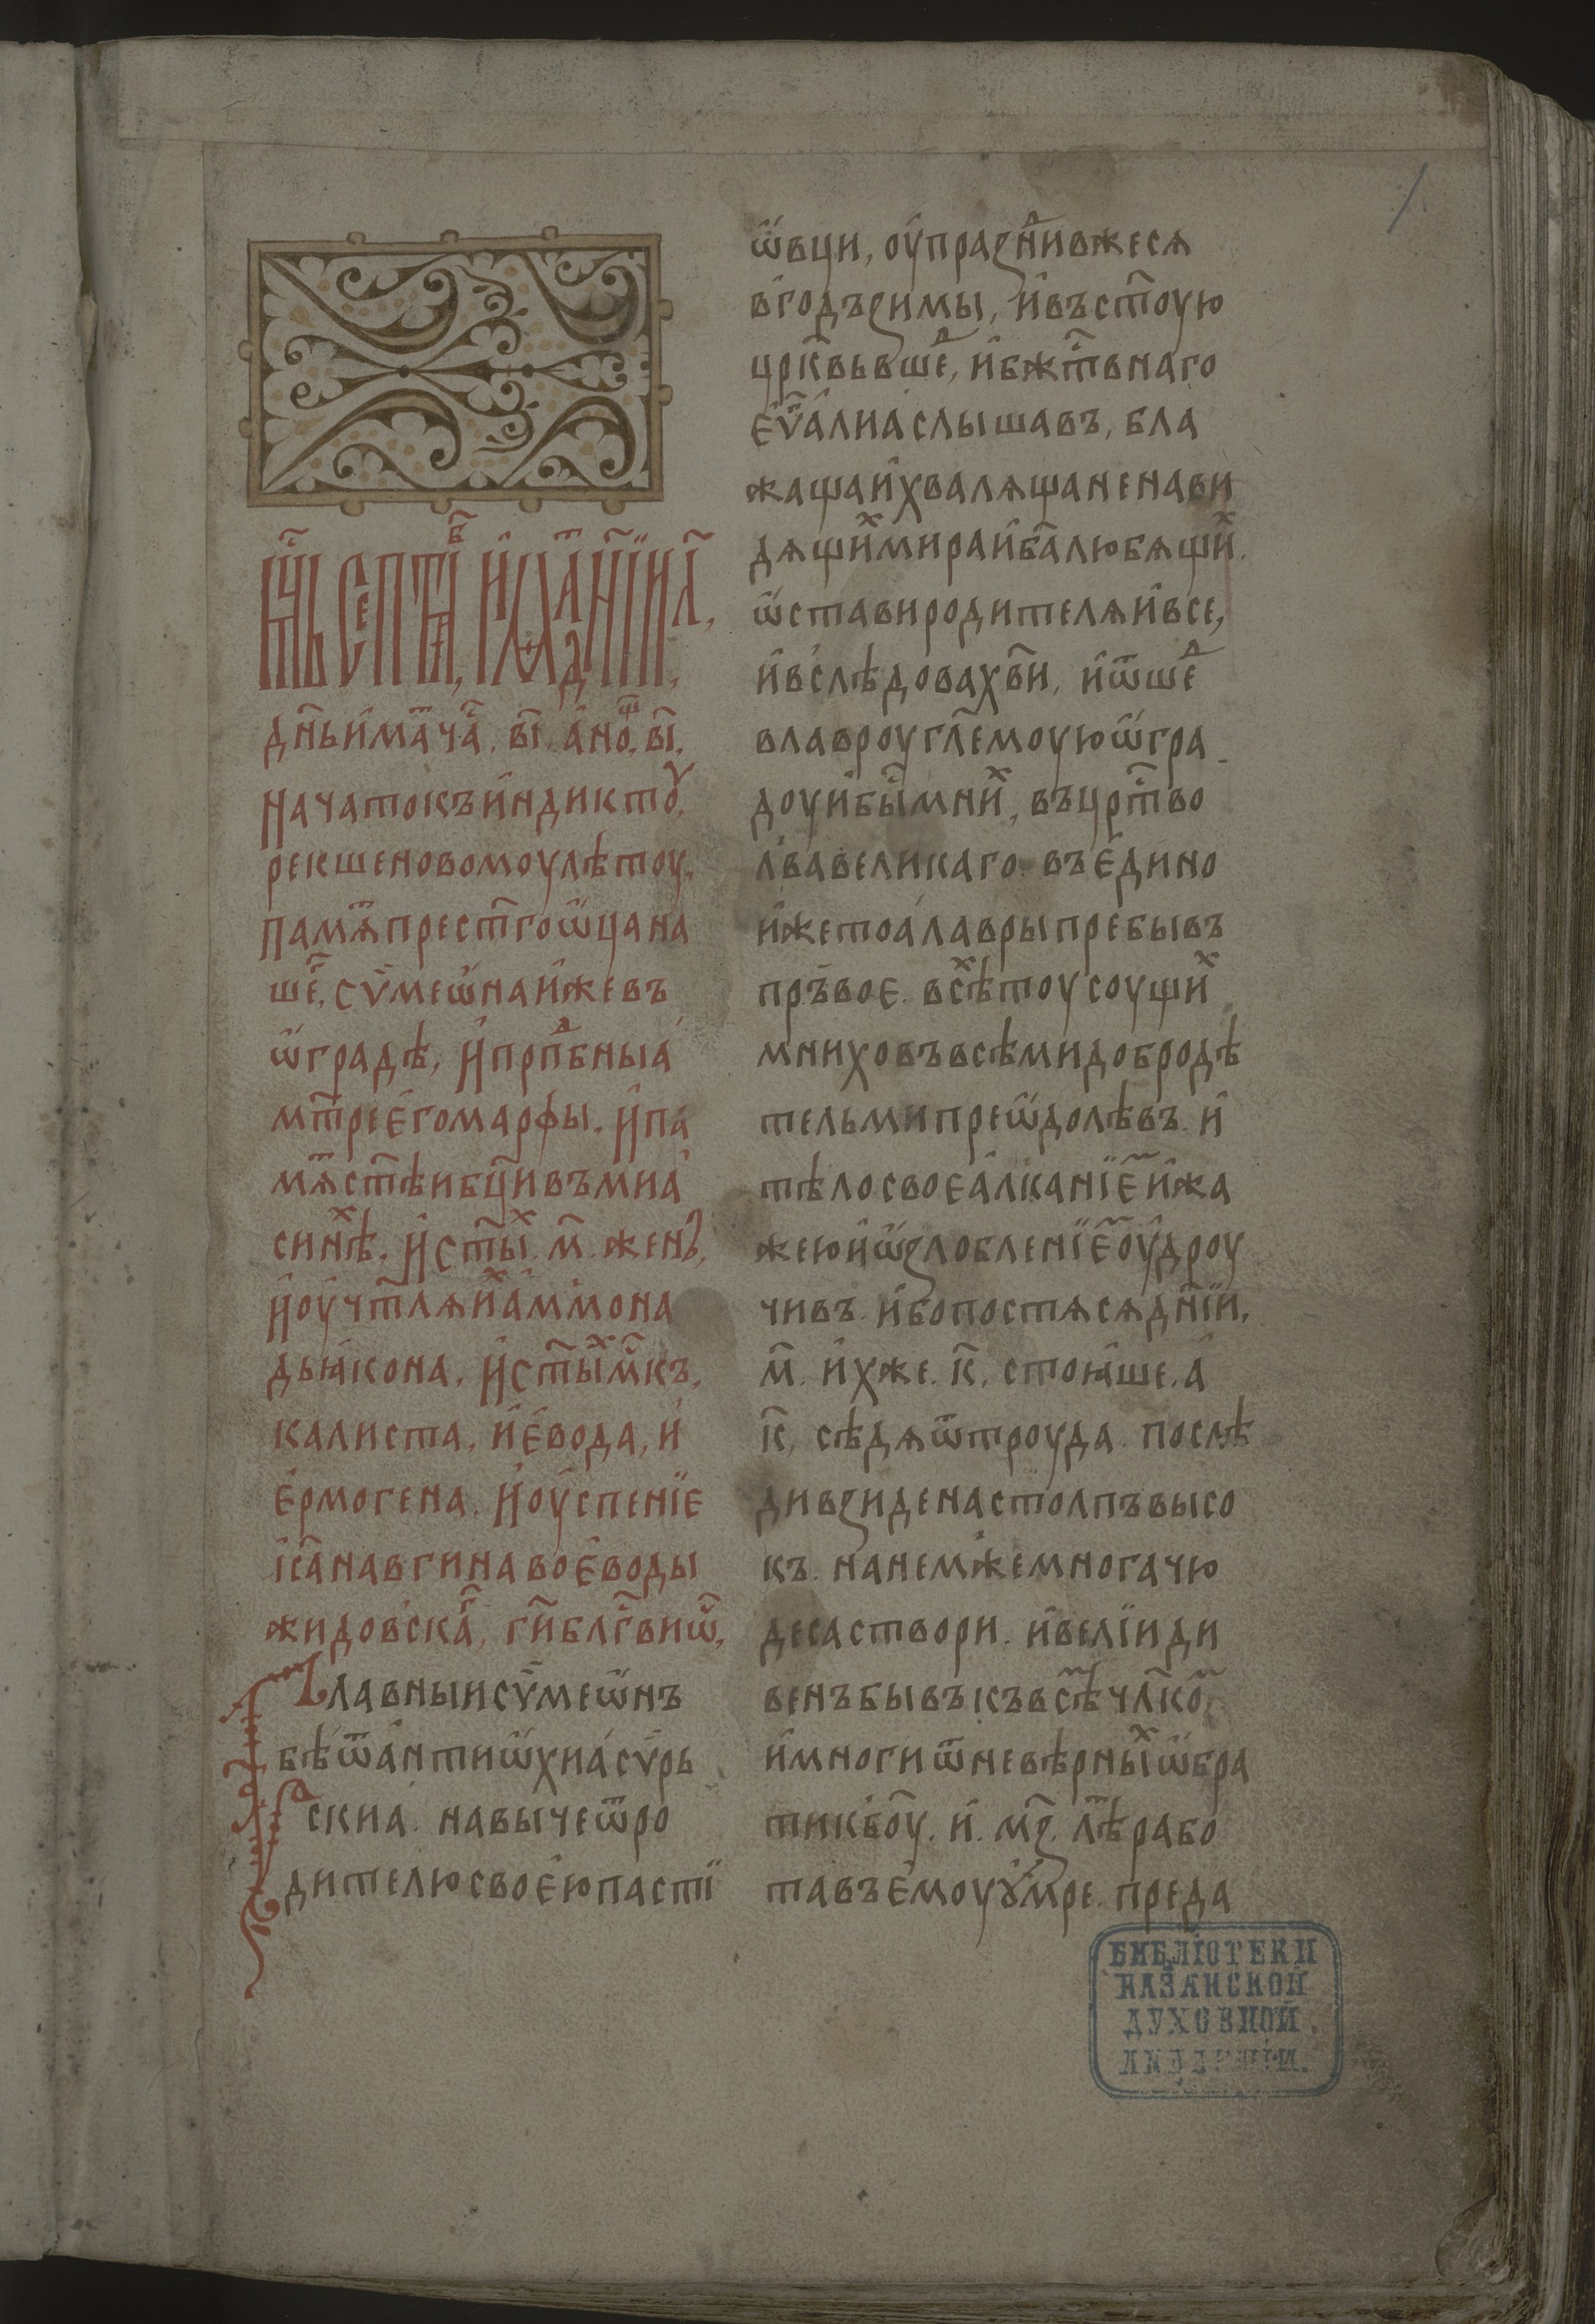 мс҃ць септѧ҃б, и҆мат̾ дн҃їи л҃,
дн҃ь и҆мат̾ ча҃. в҃і. а҆ но҃щ. в҃і.
начатокъи҆ндиктоу,
рекшеновомоулѣтоу.
памѧ҃т прест҃гоѡ҆цана
ше҃г. сѵ҆меѡ҆наи҆жевъ
ѡ҆градѣ, и҆прпдбныа҆
мт҃рее҆гомарѳы. и҆па
мѧ҃т ст҃ѣибц҃ивъмиа҆
синѣх. и҆ст҃ых. м҃. женъ,
и҆оу҆чт҃лѧи҆хам҆мона
дьꙗкона. и҆ст҃ыхмч҃къ.
калиста, и҆е҆вода, и҆
е҆рмогена. и҆оу҆спенїе
іс҃анавгинавое҆воды
жидовска҃г, гн҃блг҃виѡ҃т,
Славныисѵ҆меѡ҆нъ
бѣѿа҆нтиѡ҆хиа҆сѵ҆рь
скиа. навычеѿро
дителюсвое҆юпасті
ѡ҆вци, оу҆праздниⷡжесѧ
вгодъзимы, и҆въст҃оую
црк҃вьвшед, и҆бжт҃внаго
е҆ѵ҃алиа҆слышавъ, бла
жащаи҆хвалѧщаненави
дѧщихмираи҆ба҃любѧщих.
ѡ҆ставиродителѧи҆все,
и҆вслѣдовахв҃и, и҆ѿшед
влавроугл҃емоуюѡ҆гра
доуи҆бы҃мних, въцрт҃во
лвавеликаго. въе҆дино
и҆жетоа҆лаврыпребывъ
пръвое. всѣхтоусоущих
мниховъвсѣмидобродѣ
тельмипреѡ҆долѣвъ. и҆
тѣлосвоеа҆лканїеми҆жа
жеюи҆ѡ҆злобленїемоу҆дроу
чивъ. и҆бопостѧсѧдн҃їи.
м҃. и҆хже. к҃. стоꙗше. а҆
к҃, сѣдѧѿтроуда. послѣ
дивзиденастолпъвысо
къ. нанемжемногачю
десаствори. и҆велїиди
венъбывъкъвсѣмчл҃ком
и҆многиѿневѣрныхѡ҆бра
тикбо҃у. и҆. мз҃. лѣ҃трабо
тавъе҆моуу҆мре. преда
БИБЛІОТЕКИ
КАЗАНСКОЙ
ДУХОВНОЙ
АКАДЕМІИ.